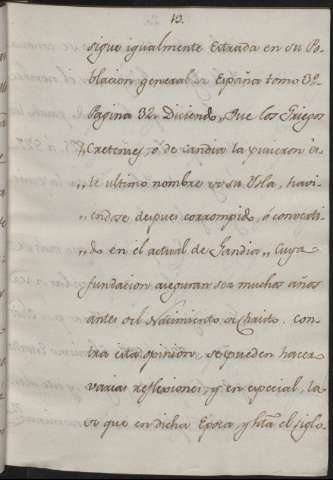 13.
sigue igualmente citada en su Po-
blacion general de España tomo 3º
Pagina 32. Diciendo „ Que los Griegos
„ Cretenses, ó de Candia la pusieron es-
„ te ultimo nombre de su Isla, havi-
„ endose despues corrompido, ó converti-
„ do en el actual de Gandia „ Cuya
fundacion aseguran ser muchos años
antes del Nacimiento de Christo. Con-
tra esta opinion se pueden hacer
varias reflexiones, y en especial, la
de que en dicha Epoca, y htã el siglo